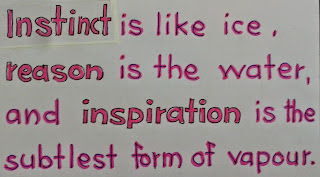 Instinct is like ice,
reason is the water,
and inspiration is the
subtlest form of vapour.